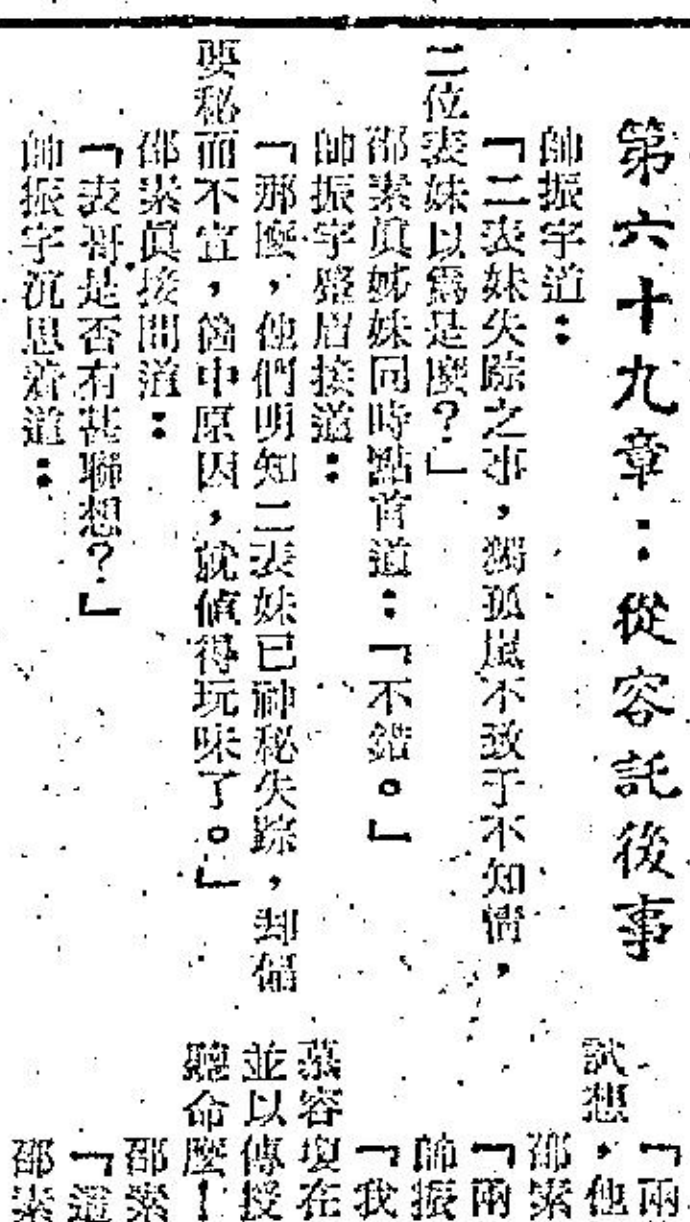 第六十九章：從容託後事
帥振宇道：
「二表妹失踪之事，獨孤嵐不致于不知情，
二位表妹以為是麼？」
邵素眞姊妹同時點首道：「不錯。」
帥振宇蹙眉接道：
「那麼，他們明知二表妹已神秘失踪，却偏
要秘而不宣，箇中原因，就値得玩味了。」
邵素眞接問道：
「表哥是否有甚聯想？」
帥振宇沉思着道：
「兩
試想，他
邵素
「兩
帥振
「我
慕容　在
並以傳授
聽命麼！
邵素
「這
邵素